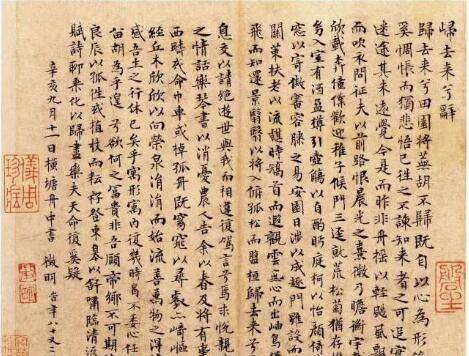 歸去来兮辭
歸去来兮田園將蕪胡不歸既自以心為形
奚惆悵而獨悲悟已往之不諫知来者之可追
迷途其未遠覺今是而昨非舟摇以輕颺風飄
而吹衣問征夫以前路恨晨光之熹微乃瞻衡宇
欣載奔僮僕歡迎稚子候門三逕就荒松菊猶存
幼入室有酒盈樽引壺觴以自酌眄庭柯以怡顔倚
窓以寄傲審容膝之易安園日涉以成趣門雖設而
關策扶老以流憩時矯首而遐觀雲無心而出岫鳥
飛而知還景翳翳以將入撫孤松而盤桓歸去来兮
息交以請絶遊世與我而相違復駕言兮焉求悦親
之情話樂琴書以消憂農人告余以春及將有事
西疇或命巾車或掉孤舟既窈窕以尋壑亦崎嶇
經丘木欣欣以向榮泉涓涓而始流善萬物之得
感吾生之行休已矣乎寓形寓内復幾時曷不委心任
留胡為乎遑遑兮欲何之富貴非吾願帝鄉不可期
良辰以孤往或植杖而耘耔登東皋以舒嘯臨清流
賦詩聊乘化以歸盡樂夫天命復奚疑
辛亥九月十一日橫塘舟中書 徵明 時年八十又二